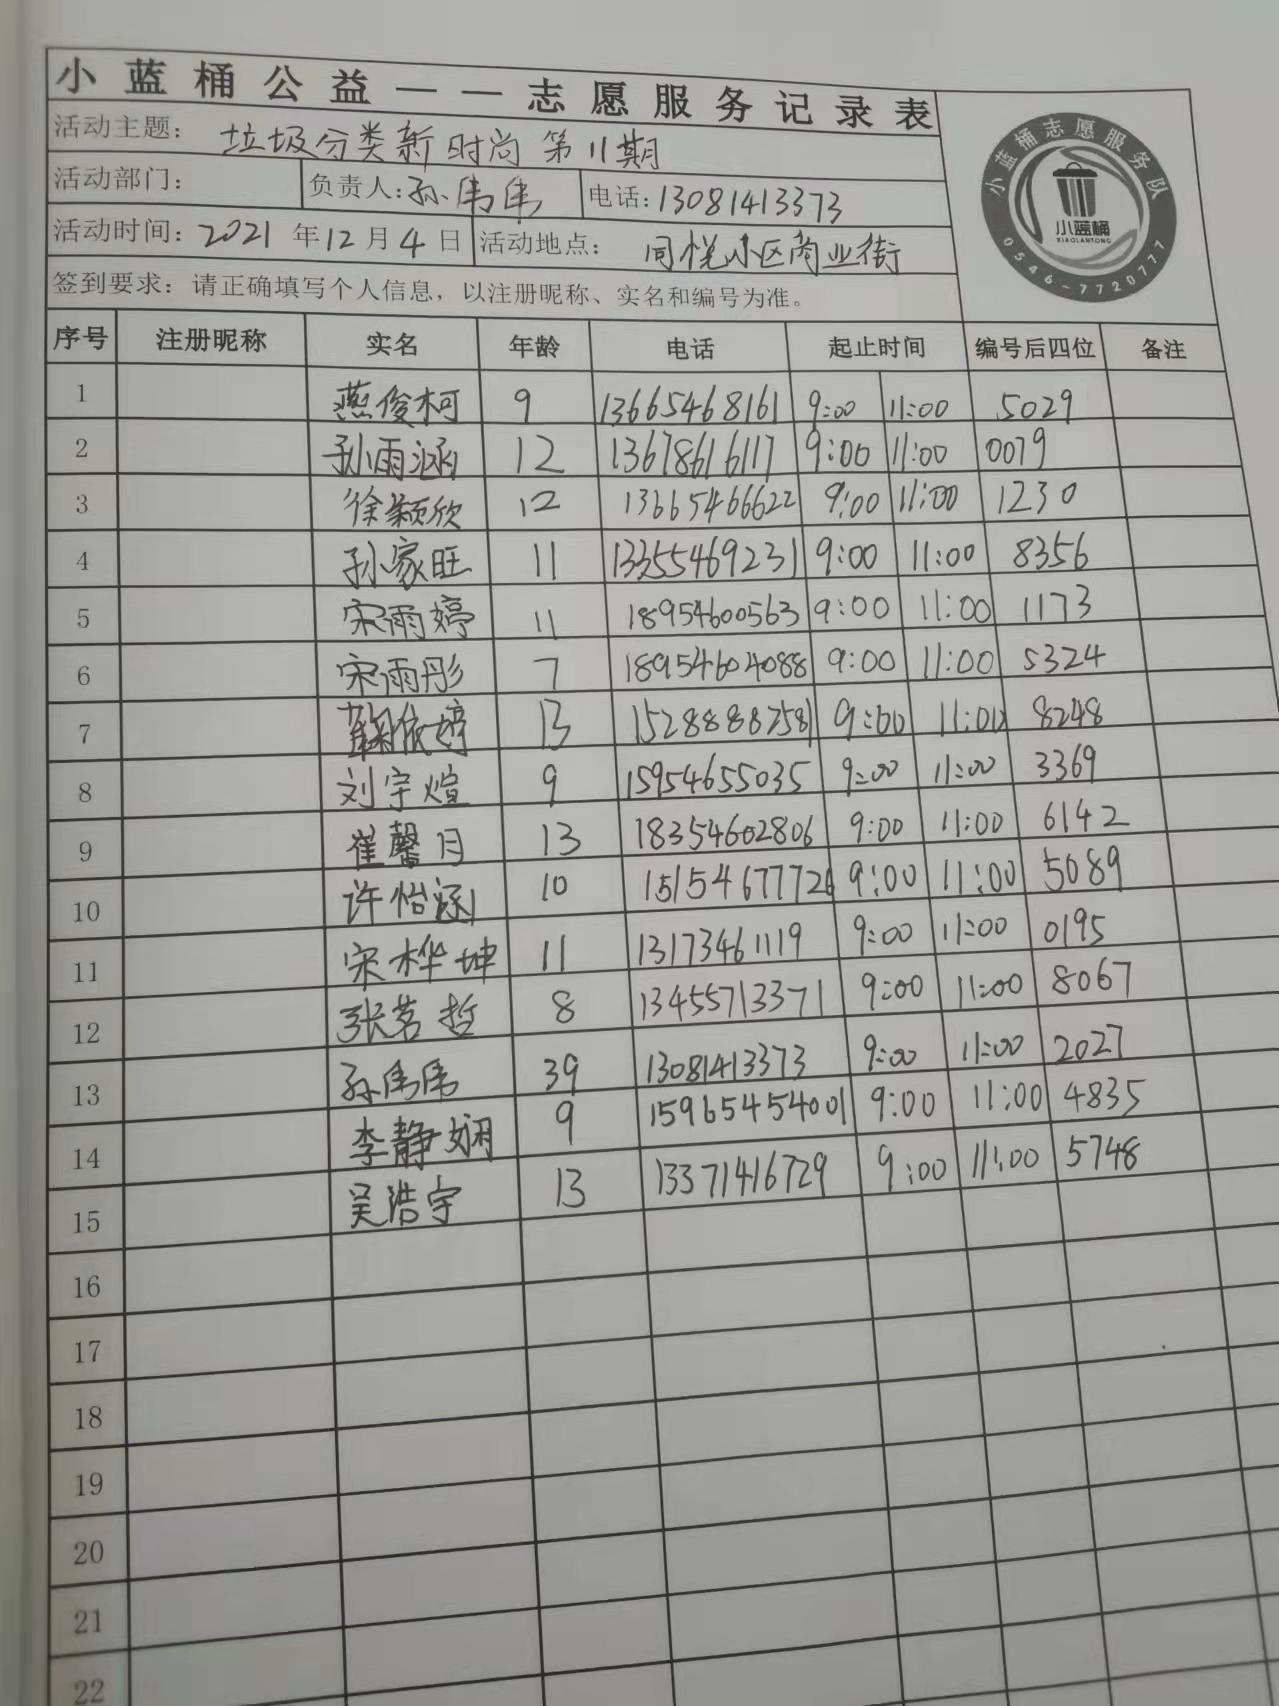 小蓝桶公益——志愿服务记录表
活动主题： 垃圾分类新时尚 第11期
活动部门： 负责人：孙伟伟 电话：13081413373
活动时间：2021年12月4日 活动地点： 同悦小区商业街
签到要求：请正确填写个人信息，以注册昵称、实名和编号为准。
小蓝桶志愿服务队
小蓝桶
XIAOLANTONG
0546-7720777
序号 注册昵称 实名 年龄 电话 起止时间 编号后四位 备注
1 燕俊柯 9 13665468161 9:00 11:00 5029
2 孙雨涵 12 13678616117 9:00 11:00 0079
3 徐颖欣 12 13665466622 9:00 11:00 1230
4 孙家旺 11 13355469231 9:00 11:00 8356
5 宋雨婷 11 18954600563 9:00 11:00 1173
6 宋雨彤 7 18954604088 9:00 11:00 5324
7 依婷 13 15288882581 9:00 11:00 8248
8 刘宇煊 9 15954655035 9:00 11:00 3369
9 崔馨月 13 18354602806 9:00 11:00 6142
10 许怡涵 10 15154677726 9:00 11:00 5089
11 宋桦坤 11 13173461119 9:00 11:00 0195
12 张茗哲 8 13455713371 9:00 11:00 8067
13 孙伟伟 39 13081413373 9:00 11:00 2027
14 李静娴 9 15965454001 9:00 11:00 4835
15 吴浩宇 13 13371416729 9:00 11:00 5748
16
17
18
19
20
21
22